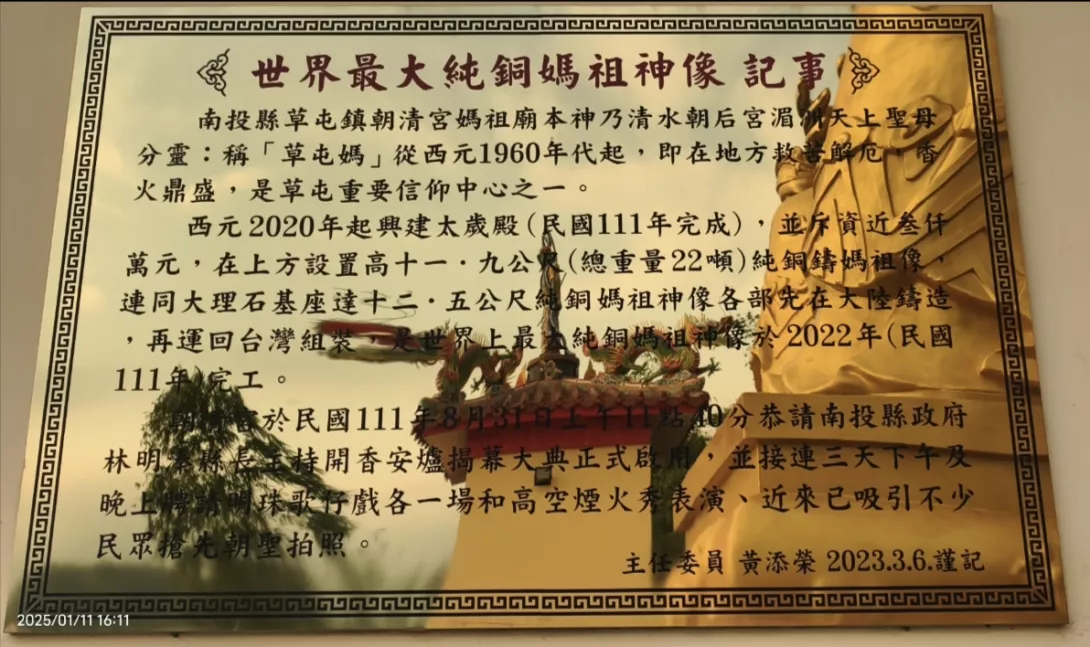 世界最大純銅媽祖神像 記事
南投縣草屯鎮朝清宮媽祖廟本神乃清水朝后宮湄洲天上聖母
分靈：稱「草屯媽」從西元1960年代起，即在地方救苦解厄，香
火鼎盛，是草屯重要信仰中心之一。
西元2020年起興建太歲殿(民國111年完成)，並斥資近叁仟
萬元，在上方設置高十一．九公尺(總重量22噸)純銅鑄媽祖像，
連同大理石基座達十二．五公尺純銅媽祖神像各部先在大陸鑄造
，再運回台灣組裝，是世界上最大純銅媽祖神像於2022年(民國
111年)完工。
朝清宮於民國111年8月31日上午11點40分恭請南投縣政府
林明溱縣長主持開香安爐揭幕大典正式啟用，並接連三天下午及
晚上聘請明珠歌仔戲各一場和高空煙火秀表演、近來已吸引不少
民眾搶先朝聖拍照。
主任委員 黃添榮 2023.3.6.謹記
2025/01/11 16:11